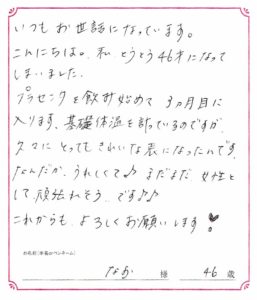 いつもお世話になっています。
こんにちは。私、とうとう46才になって
しまいました。
プラセンタを飲み始めて 3ヵ月目に
入ります。基礎体温を計っているのですが、
久々に とっても きれいな表になったんです。
なんだか、うれしくて♪ まだまだ 女性と
して、頑張れそう、です♪♪
これからも、よろしくお願いします!
お名前(本名orペンネーム)
なお 様 46 歳